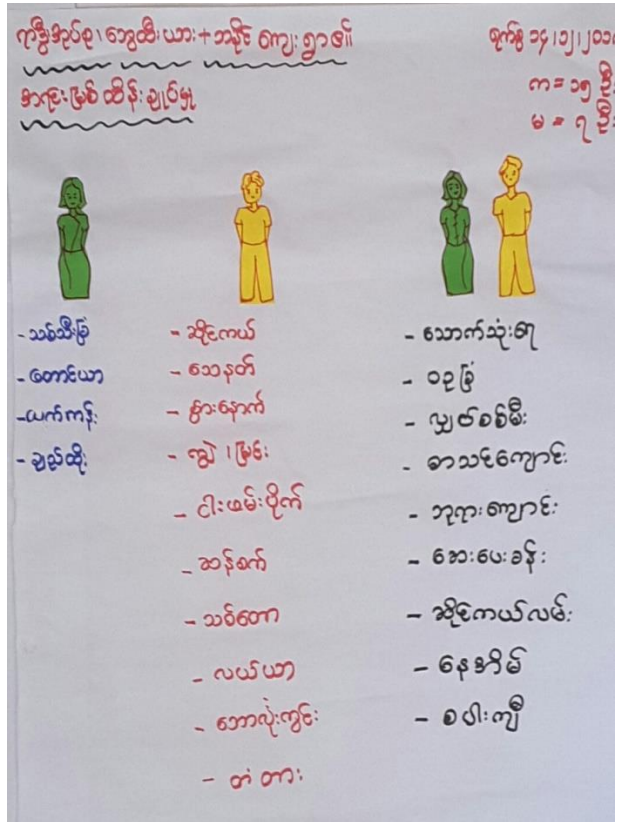 ကဒွီအုပ်စု၊ ဘွေထီးယား+ဘနိုင် ကျေးရွာ၏
ရက်စွဲ ၁၄၊၁၂၊၂၀၁
အရင်းမြစ်ထိန်းချုပ်မှု
က = ၁၅ ဦး
မ = ၇ ဦး
- သစ်သီးခြံ
- တောင်ယာ
- ယက်ကန်း
- ချည်ထိုး
- ဆိုင်ကယ်
- သေနတ်
- နွားနောက်
- ကျွဲ ၊ မြင်း
- ငါးဖမ်းပိုက်
- ဆန်စက်
- သစ်တော
- လယ်ယာ
- ဘောလုံးကွင်း
- တံတား
- သောက်သုံးရေ
- ဝဥခြံ
- လျှပ်စစ်မီး
- စာသင်ကျောင်း
- ဘုရားကျောင်း
- ဆေးပေးခန်း
- ဆိုင်ကယ်လမ်း
- နေအိမ်
- စပါးကျီ